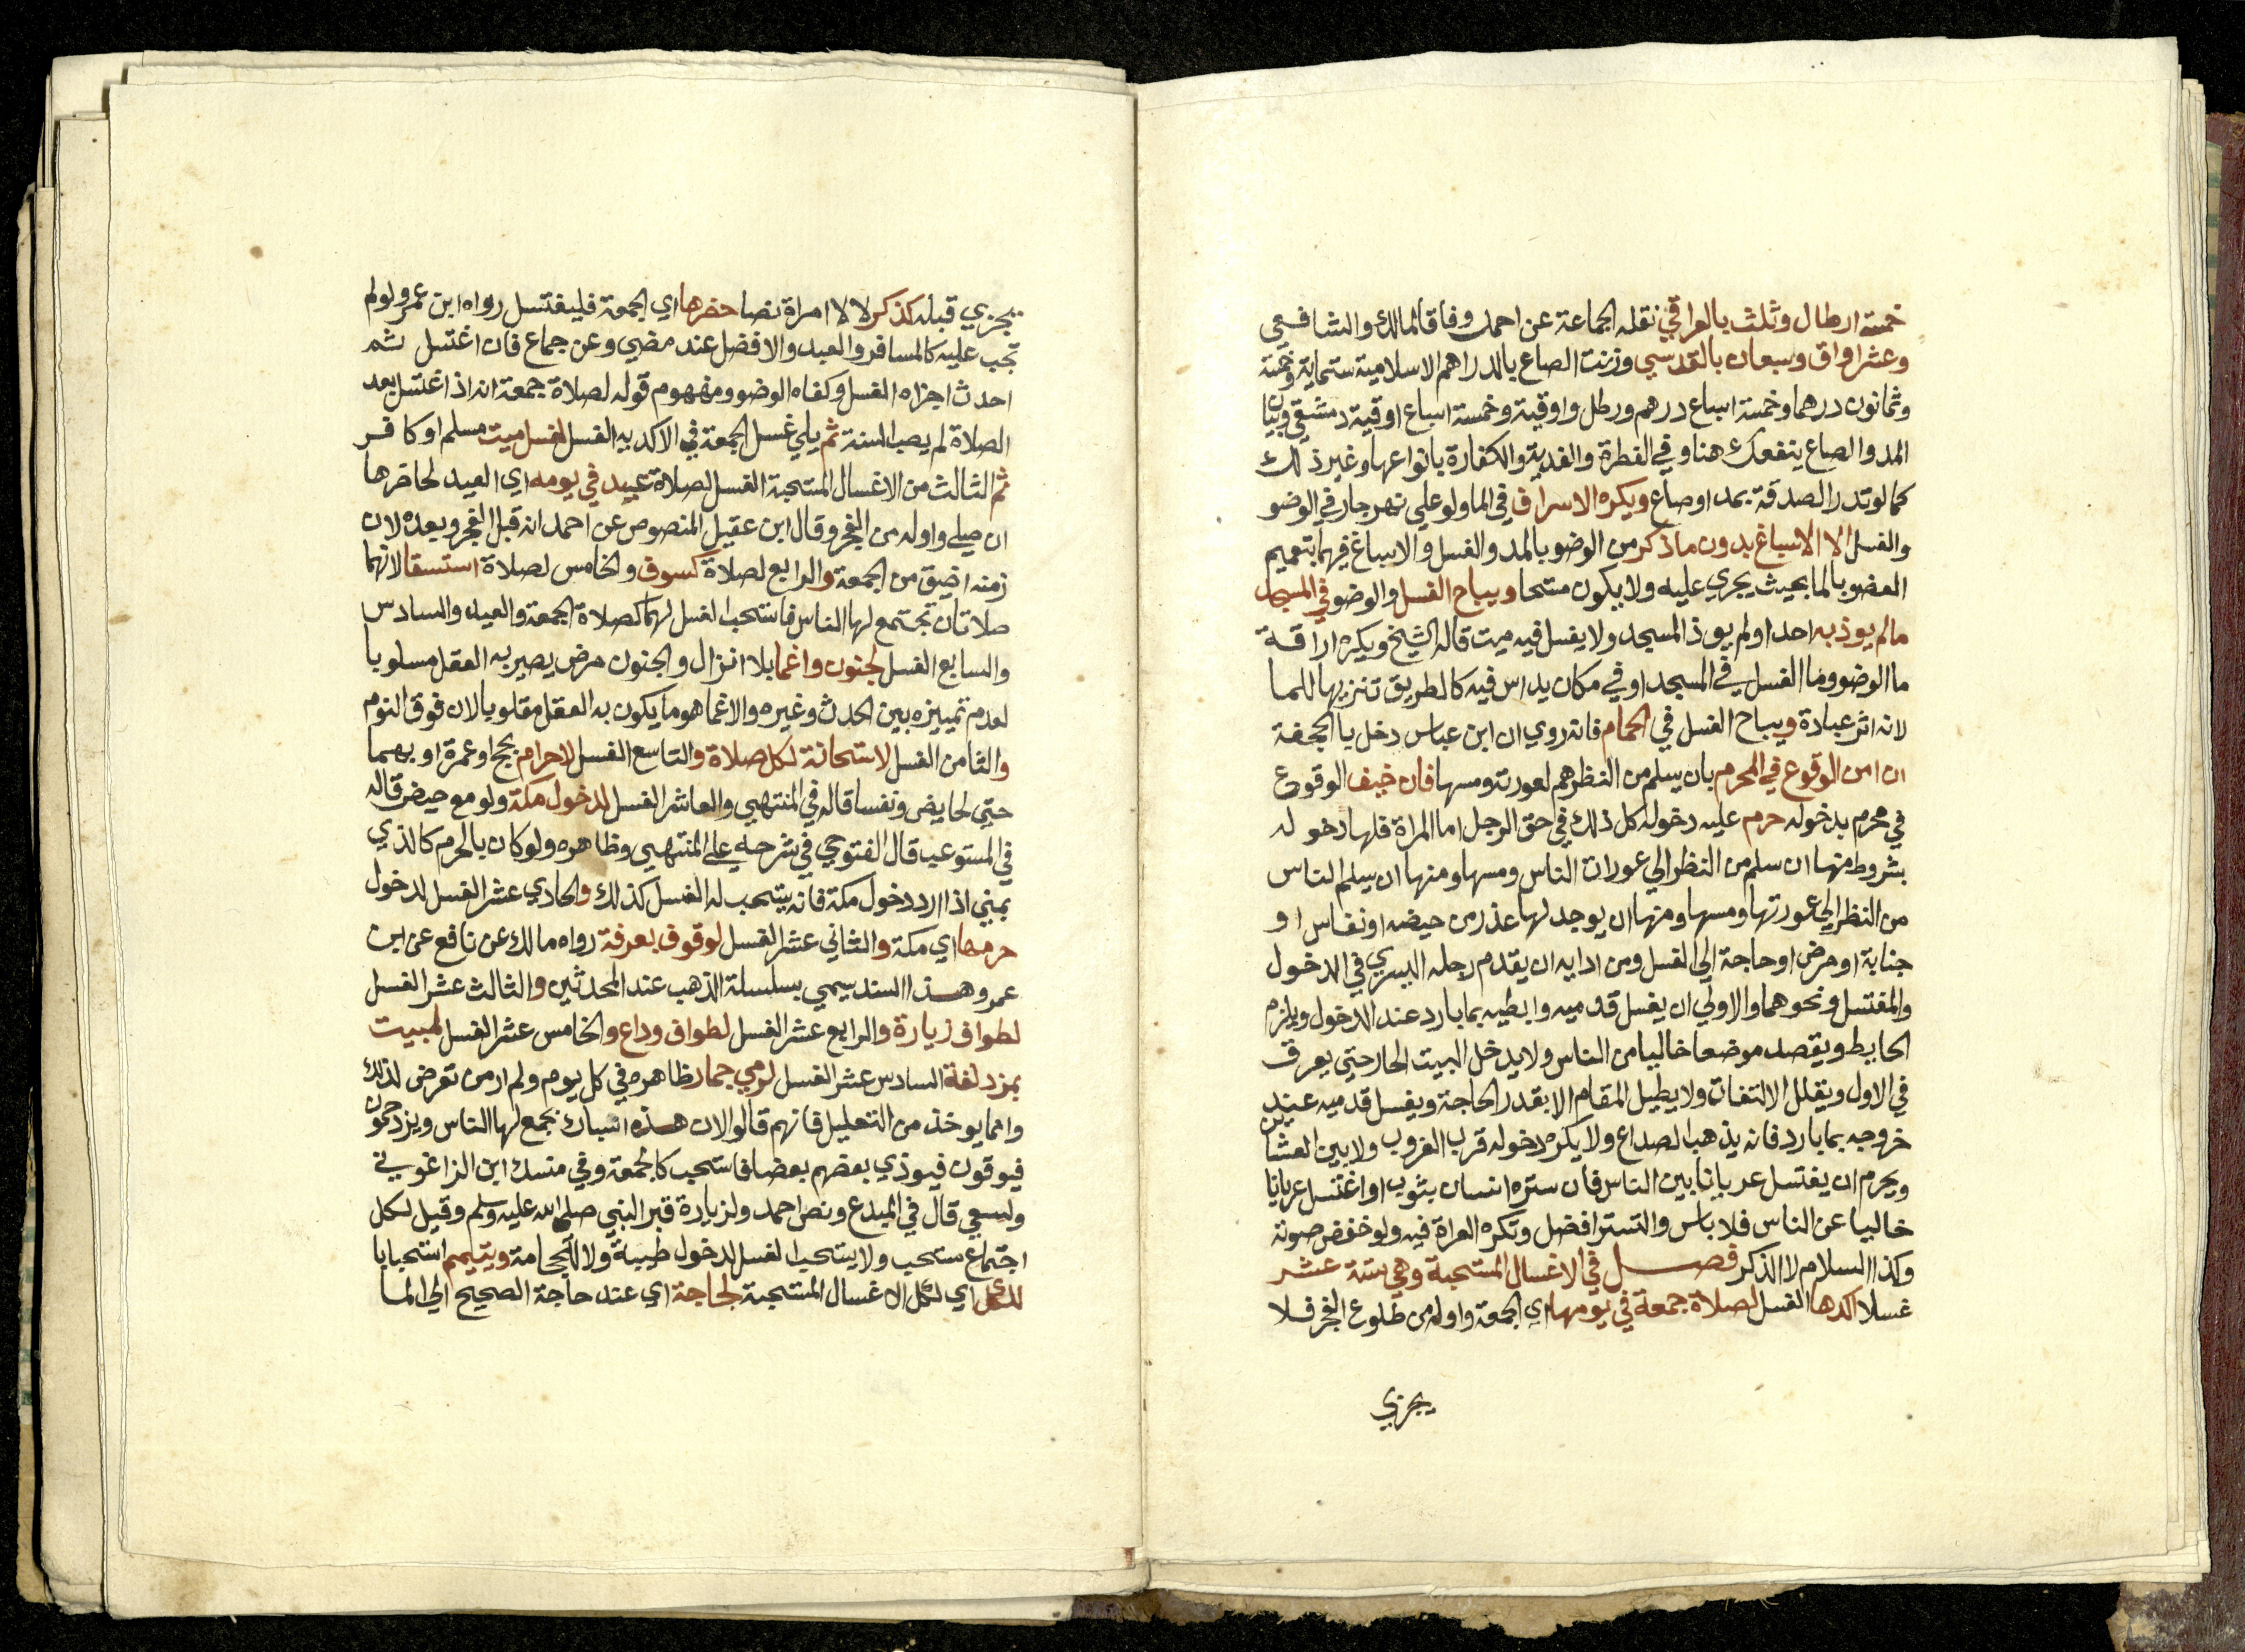 خمسة ارطال وثلث بالعراقي نقله الجماعة عن احمد وفاقا لمالك والشافعي
وعشر اواق وسبعان بالقدسي وزنت الصاع بالدراهم الاسلامية ستماية وخمسة
وثمانون درهما وخمسة اسباع درهم ورطل واوقية وخمسة اسباع اوقية دمشقي وبيان
المد والصاع ينفعك هنا وفي الفطرة والفدية والكفارة بانواعها وغير ذلك
كما لو نذر الصدقة بمد او صاع ويكره الاسراف في الما ولو علي نهر جار في الوضو
والغسل لا الاسباغ بدون ما ذكر من الوضو بالمد والغسل والاسباغ فيهما بتعميم
العضو بالما بحيث يجري عليه ولا يكون مسحا ويباح الغسل والوضو في المسجد
ما لم يوذ به احدا ولم يوذ المسجد ولا يغسل فيه ميت قاله الشيخ ويكره اراقة
ما الوضو وما الغسل في المسجد او في مكان يداس فيه كالطريق تنزيها للما
لانه اثر عبادة ويباح الغسل في الحمام فانه روي ان ابن عباس دخل يا الجحفة
ان امن الوقوع في المحرم بان يسلم من النظرهم لعورته ومسها فان خيف الوقوع
في محرم بدخوله حرم عليه دخوله كل ذلك في حق الرجل اما المراة فلها دخوله
بشروط منها ان سلم من النظر الي عورات الناس ومسها ومنها ان يسلم الناس
من النظر الي عورتها ومسها ومنها ان يوجد لها عذر من حيضه او نفاس او
جنابة او مرض او حاجة الي الغسل ومن ادابه ان يقدم رجله اليسري في الدخول
والمغتسل ونحوهما والاولي ان يغسل قدميه وابطيه بما بارد عند الدخول ويلزم
الحايط ويقصد موضعا خاليا من الناس ولا يدخل البيت الحار حتي يعرق
في الاول ويقلل الالتفات ولا يطيل المقام الا بقدر الحاجة ويغسل قدميه عند
خروجه بما بارد فانه يذهب الصداع ولا يكره دخوله قرب الغروب ولا بين العشاين
ويحرم ان يغتسل عريانا بين الناس فان ستره انسان بثوب او اغتسل عريانا
خاليا عن الناس فلا باس والتستر افضل وتكره القراة فيه ولو خفض صوته
وكذا السلام لا الذكر فصل في الاغسال المستحبة وهي ستة عشر
غسلا اكدها الغسل لصلاة جمعة في يومها اي الجمعة واوله من طلوع الفجر فلا
يجزي
يجزي قبله كذكر لا لا امراة نصا حضرها اي الجمعة فليغتسل رواه ابن عمر ولو لم
تجب عليه كالمسافر والعبد والافضل عند مضي وعن جماع فان اغتسل ثم
احدث اجزاه الغسل وكفاه الوضو ومفهوم قوله لصلاة جمعة انه اذا اغتسل بعد
الصلاة لم يصب السنة ثم يلي غسل الجمعة في الاكديه الغسل لغسل ميت مسلم او كافر
ثم الثالث من الاغسال المستحبة الغسل لصلاة عيد في يومه اي العيد لحاضرها
ان صلي واوله من الفجر وقال ابن عقيل المنصوص عن احمد انه قبل الفجر وبعده لان
زمنه اضيق من الجمعة والرابع لصلاة كسوف والخامس لصلاة استسقا لانهما
صلاتان تجتمع لها الناس فاستحب الغسل لهما كصلاة الجمعة والعيد والسادس
والسابع الغسل لجنون واغما بلا انزال والجنون مرض يصير به العقل مسلوبا
لعدم تمييزه بين الحدث وغيره والاغما هو ما يكون به العقل مقلوبا لان فوق النوم
والثامن الغسل لاستحاضة لكل صلاة والتاسع الغسل لاحرام بحج او عمرة او بهما
حتي لحايض ونفسا قاله في المنتهي والعاشر الغسل لدخول مكة ولو مع حيض قاله
في المستوعب قال الفتوحي في شرحه علي المنتهي وظاهره ولو كان بالحرم كالذي
بمني اذا اراد دخول مكة فانه يستحب له الغسل كذلك والحادي عشر الغسل لدخول
حرمها اي مكة والثاني عشر الغسل لوقوف بعرفة رواه مالك عن نافع عن ابن
عمر وهذا السند يسمي بسلسلة الذهب عند المحدثين والثالث عشر الغسل
لطواف زيارة والرابع عشر الغسل لطواف وداع والخامس عشر الغسل لمبيت
بمزدلفة السادس عشر الغسل لرمي جمار ظاهره في كل يوم ولم ار من تعرض لذلك
وانما يوخذ من التعليل فانهم قالوا لان هذه انساك تجمع لها الناس ويزدحمون
فيعرقون فيوذي بعضهم بعضا فاستحب كالجمعة وفي منسك ابن الزاغوني
ولسعي قال في المبدع ونص احمد ولزيارة قبر النبي صلي الله عليه وسلم وقيل لكل
اجتماع مستحب ولا يستحب الغسل لدخول طيبة ولا للحجامة ويتيمم استحبابا
للكل اي لكل الاغسال المستحبة لحاجة اي عند حاجة الصحيح الي الما